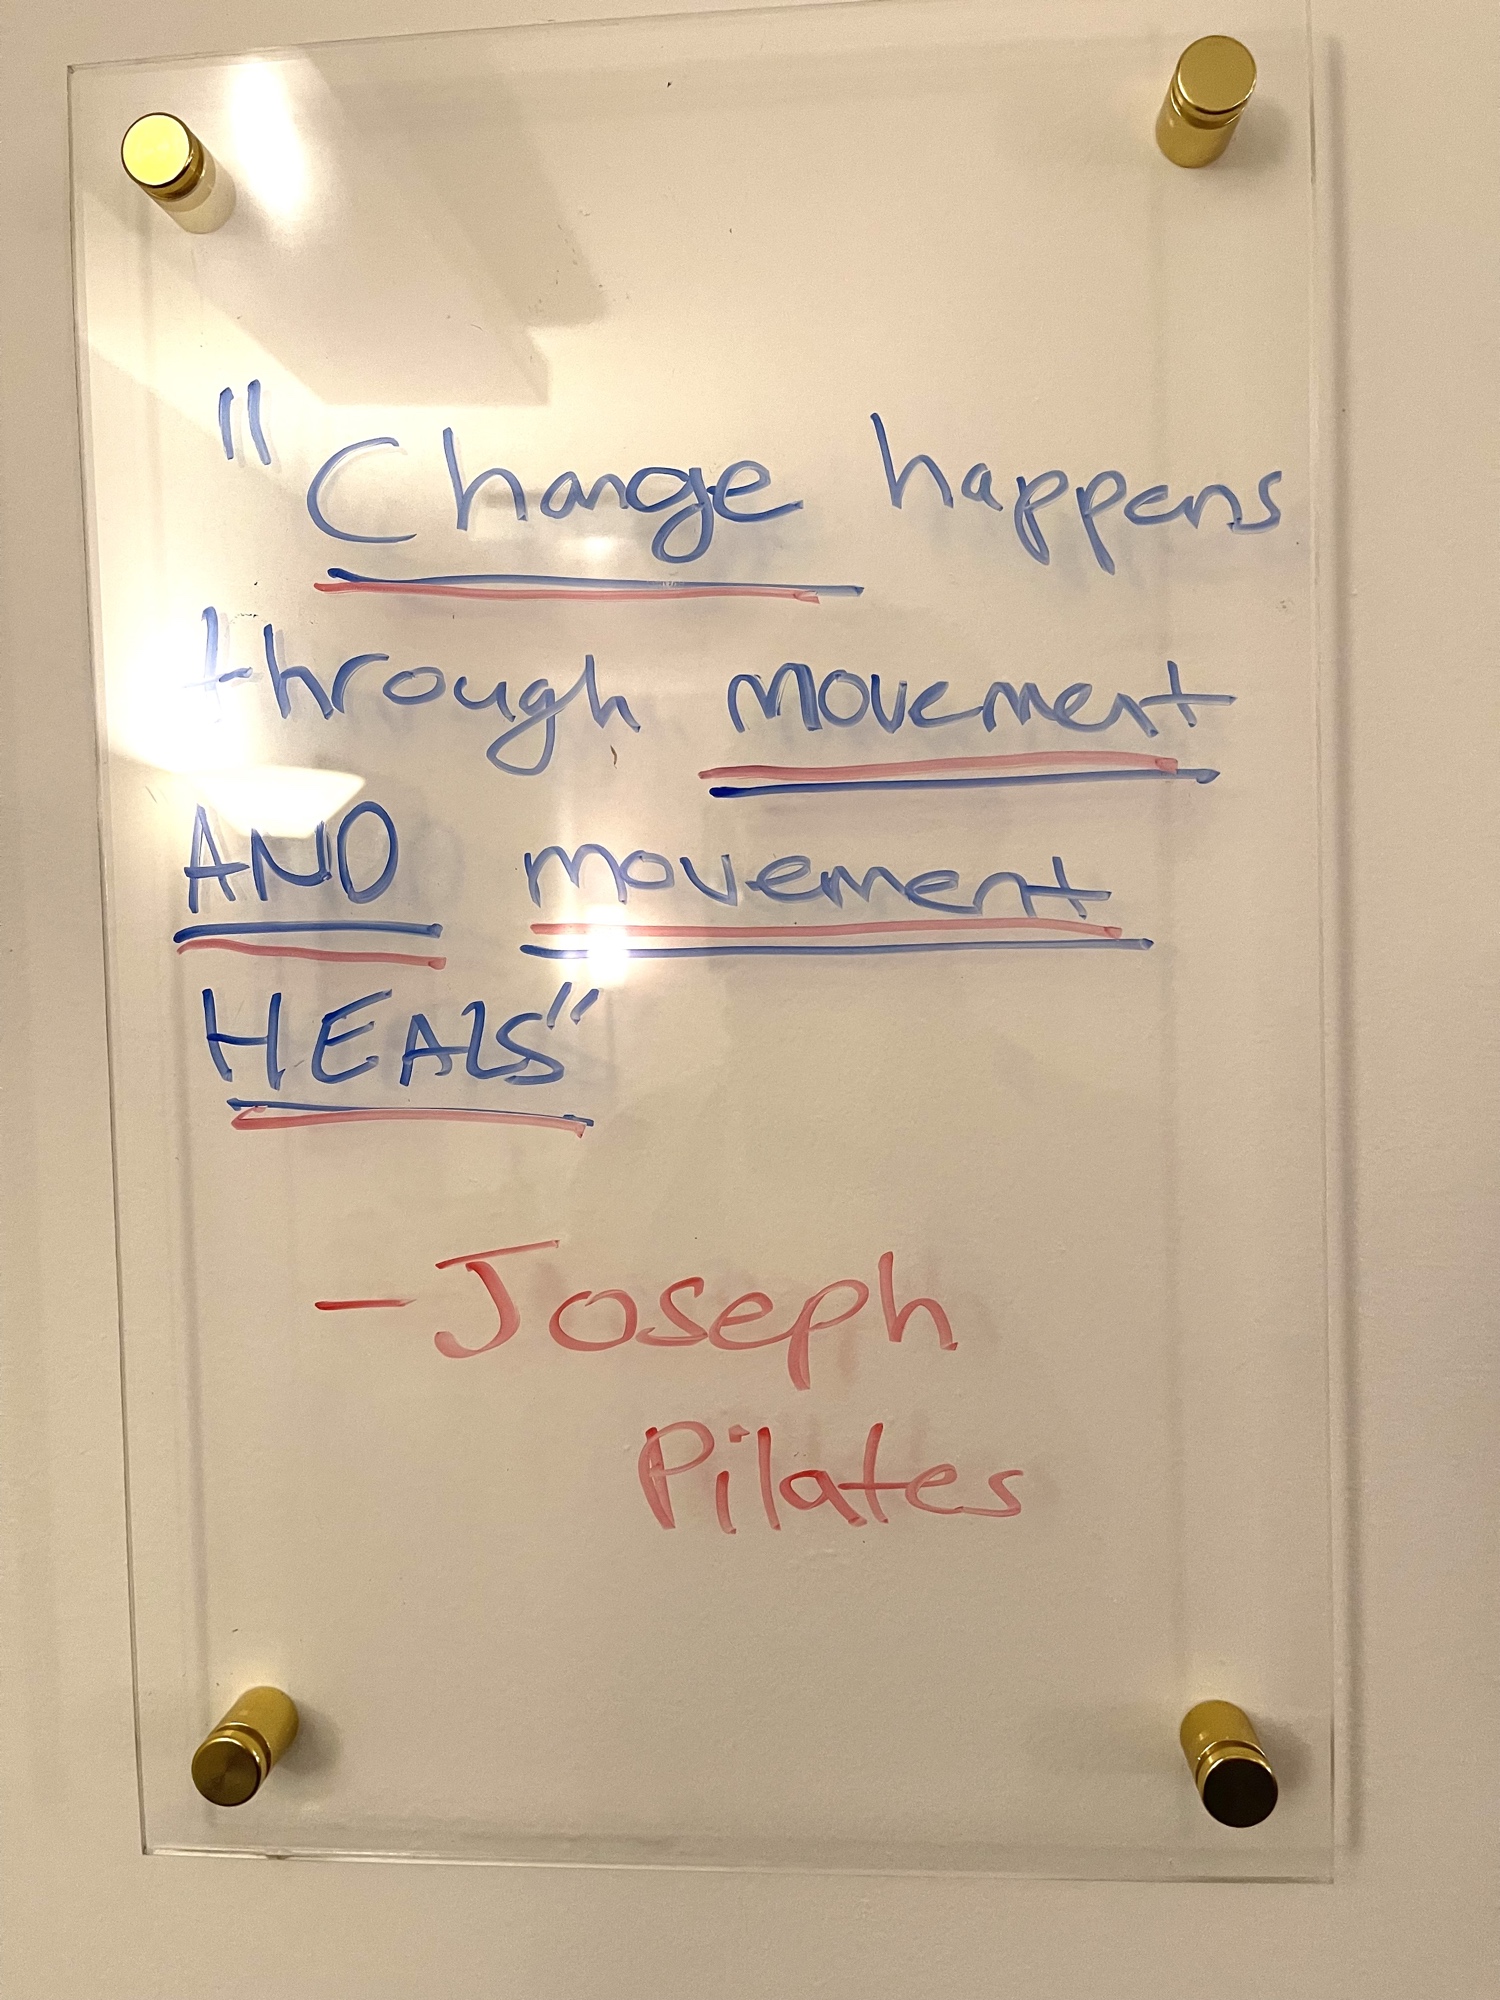 "Change happens
through movement
AND movement
HEALS"
-Joseph
Pilates